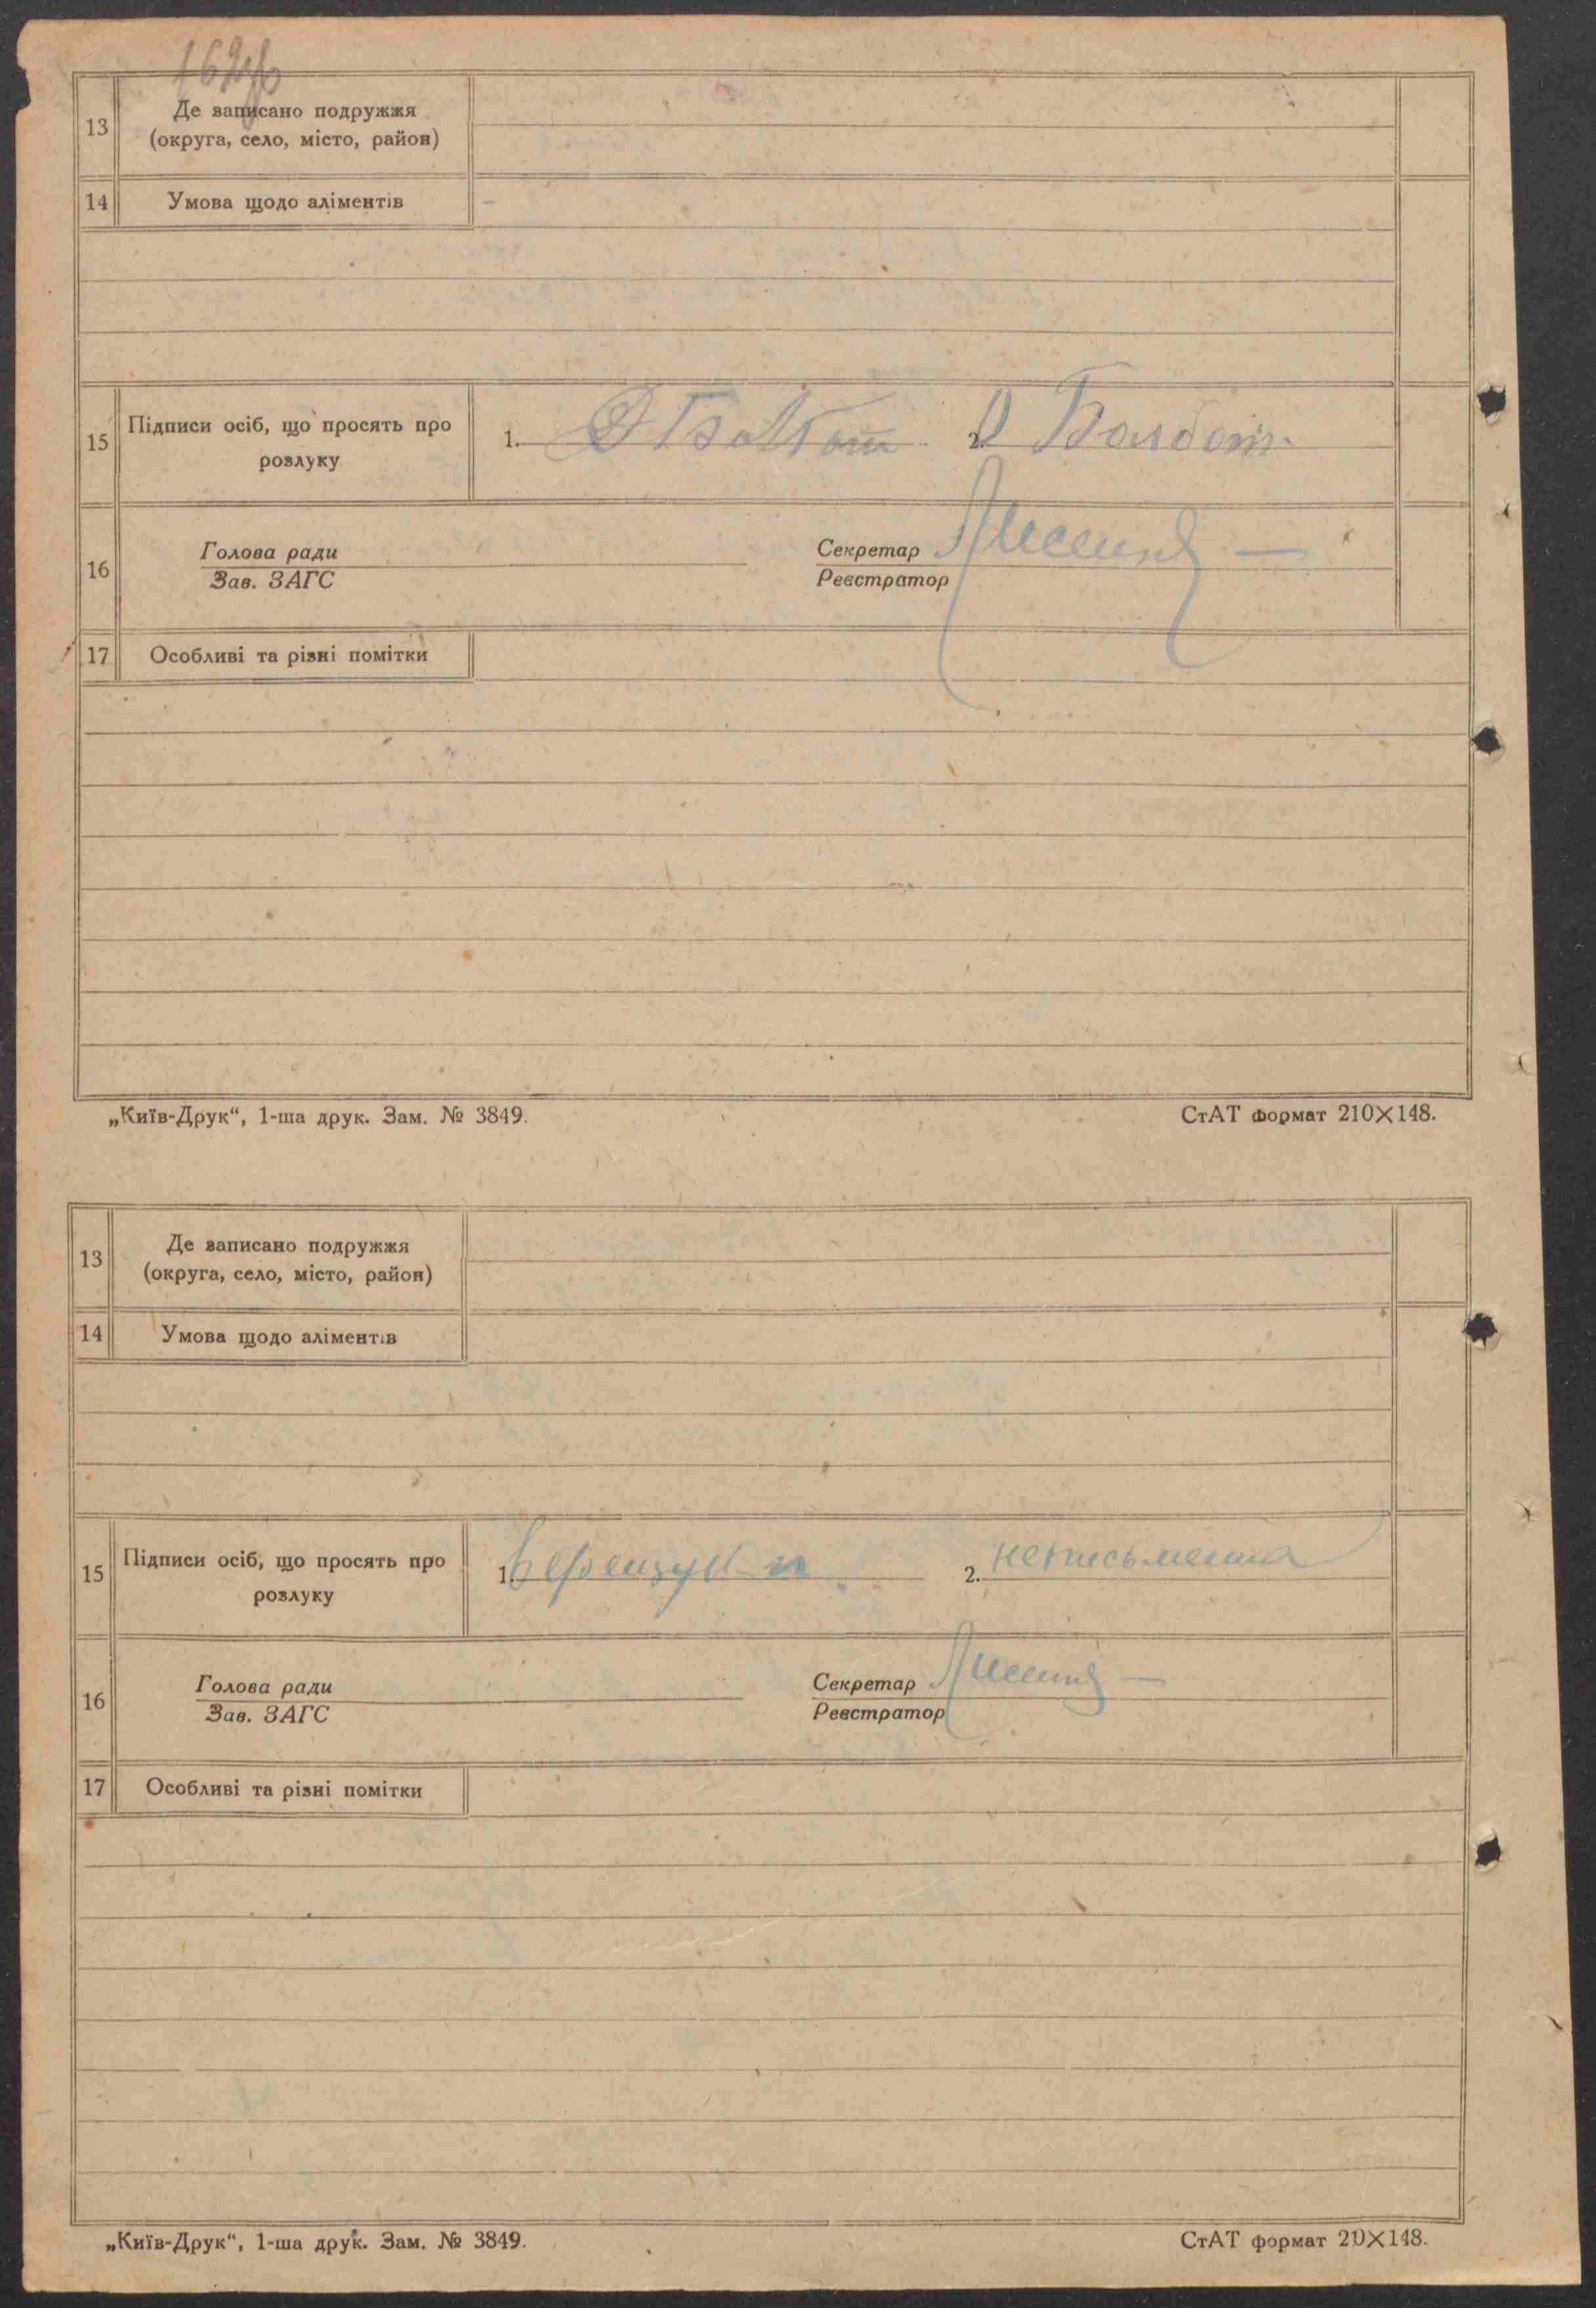 169зв
13
Де записано подружжя
(округа, село, місто, район)
14
Умова щодо аліментів
-
15
Підписи осіб, що просять про
розлуку
1.
2. Болбот.
16
Голова ради
Зав. ЗАГС
Секретар
Реєстратор
17
Особливі та різні помітки
„Київ-Друк“, 1-ша друк. Зам. № 3849.
СтАТ формат 210×148.
13
Де записано подружжя
(округа, село, місто, район)
14
Умова щодо аліментів
15
Підписи осіб, що просять про
розлуку
1.
2. неписьменна
16
Голова ради
Зав. ЗАГС
Секретар
Реєстратор
17
Особливі та різні помітки
„Київ-Друк“, 1-ша друк. Зам. № 3849.
СтАТ формат 210×148.